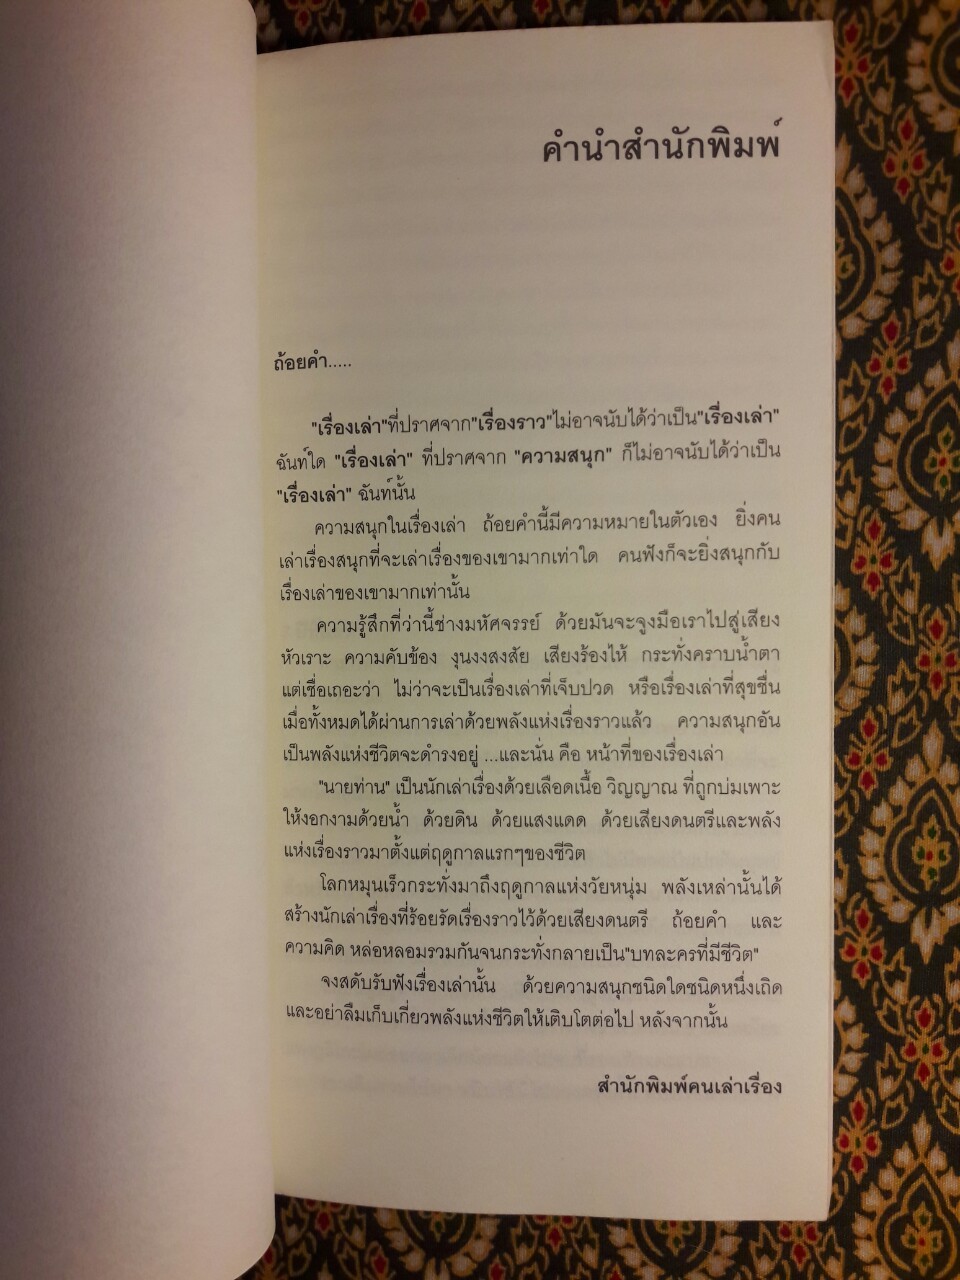 คำนำสำนักพิมพ์
ถ้อยคำ.....
"เรื่องเล่า"ที่ปราศจาก"เรื่องราว"ไม่อาจนับได้ว่าเป็น"เรื่องเล่า"
ฉันท์ใด "เรื่องเล่า" ที่ปราศจาก "ความสนุก" ก็ไม่อาจนับได้ว่าเป็น
"เรื่องเล่า" ฉันท์นั้น
ความสนุกในเรื่องเล่า ถ้อยคำนี้มีความหมายในตัวเอง ยิ่งคน
เล่าเรื่องสนุกที่จะเล่าเรื่องของเขามากเท่าใด คนฟังก็จะยิ่งสนุกกับ
เรื่องเล่าของเขามากเท่านั้น
ความรู้สึกที่ว่านี้ช่างมหัศจรรย์ ด้วยมันจะจูงมือเราไปสู่เสียง
หัวเราะ ความคับข้อง งุนงงสงสัย เสียงร้องไห้ กระทั่งคราบน้ำตา
แต่เชื่อเถอะว่า ไม่ว่าจะเป็นเรื่องเล่าที่เจ็บปวด หรือเรื่องเล่าที่สุขชื่น
เมื่อทั้งหมดได้ผ่านการเล่าด้วยพลังแห่งเรื่องราวแล้ว ความสนุกอัน
เป็นพลังแห่งชีวิตจะดำรงอยู่ ...และนั่น คือ หน้าที่ของเรื่องเล่า
"นายท่าน" เป็นนักเล่าเรื่องด้วยเลือดเนื้อ วิญญาณ ที่ถูกบ่มเพาะ
ให้งอกงามด้วยน้ำ ด้วยดิน ด้วยแสงแดด ด้วยเสียงดนตรีและพลัง
แห่งเรื่องราวมาตั้งแต่ฤดูกาลแรกๆของชีวิต
โลกหมุนเร็วกระทั่งมาถึงฤดูกาลแห่งวัยหนุ่ม พลังเหล่านั้นได้
สร้างนักเล่าเรื่องที่ร้อยรัดเรื่องราวไว้ด้วยเสียงดนตรี ถ้อยคำ และ
ความคิด หล่อหลอมรวมกันจนกระทั่งกลายเป็น"บทละครที่มีชีวิต"
จงสดับรับฟังเรื่องเล่านั้น ด้วยความสนุกชนิดใดชนิดหนึ่งเถิด
และอย่าลืมเก็บเกี่ยวพลังแห่งชีวิตให้เติบโตต่อไป หลังจากนั้น
สำนักพิมพ์คนเล่าเรื่อง